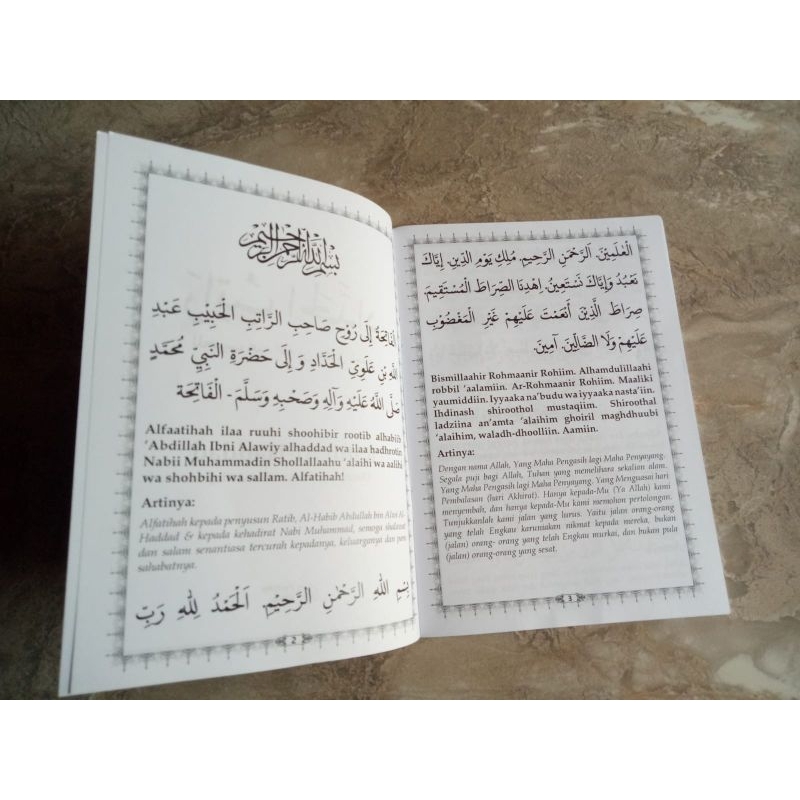 بسم الله الرحمن الرحيم
الْفَاتِحَةُ إِلَى رُوْحِ صَاحِبِ الرَّاتِبِ الْحَبِيْبِ عَبْدِ
اللهِ بْنِ عَلَوِيِّ الْحَدَّادِ وَ إِلَى حَضْرَةِ النَّبِيِّ مُحَمَّدٍ
صَلَّى اللهُ عَلَيْهِ وَآلِهِ وَصَحْبِهِ وَسَلَّمَ - الْفَاتِحَة
Alfaatihah ilaa ruuhi shoohibir rootib alhabiib
'Abdillah Ibni Alawiy alhaddad wa ilaa hadhrotin
Nabii Muhammadin Shollallaahu 'alaihi wa aalihi
wa shohbihi wa sallam. Alfatihah!
Artinya:
Alfatihah kepada penyusun Ratib, Al-Habib Abdullah Ibn Alwi Al-
Haddad & kepada kehadirat Nabi Muhammad, semoga shalawat
dan salam senantiasa tercurah kepadanya, keluarganya dan para
sahabatnya.
بِسْمِ اللهِ الرَّحْمٰنِ الرَّحِيْمِ. اَلْحَمْدُ لِلّٰهِ رَبِّ
2
الْعٰلَمِيْنَ. اَلرَّحْمٰنِ الرَّحِيْمِ. مٰلِكِ يَوْمِ الدِّيْنِ. إِيَّاكَ
نَعْبُدُ وَإِيَّاكَ نَسْتَعِيْنُ. اِهْدِنَا الصِّرَاطَ الْمُسْتَقِيْمَ
صِرَاطَ الَّذِيْنَ أَنْعَمْتَ عَلَيْهِمْ غَيْرِ الْمَغْضُوْبِ
عَلَيْهِمْ وَلَا الضَّالِّيْنَ. آمِيْنَ.
Bismillaahir Rohmaanir Rohiim. Alhamdulillaahi
robbil 'aalamiin. Ar-Rohmaanir Rohiim. Maaliki
yaumiddiin. Iyyaaka na'budu wa iyyaaka nasta'iin.
Ihdinash shiroothol mustaqiim. Shiroothal
ladziina an'amta 'alaihim ghoiril maghdhuubi
'alaihim, waladh-dhoolliin. Aamiin.
Artinya:
Dengan nama Allah, Yang Maha Pengasih lagi Maha Penyayang.
Segala puji bagi Allah, Tuhan yang memelihara sekalian alam.
Yang Maha Pengasih lagi Maha Penyayang. Yang Menguasai hari
Pembalasan (hari Akhirat). Hanya kepada-Mu (Ya Allah) kami
menyembah, dan hanya kepada-Mu kami memohon pertolongan.
Tunjukkanlah kami jalan yang lurus. Yaitu jalan orang-orang
yang telah Engkau karuniakan nikmat kepada mereka, bukan
(jalan) orang- orang yang telah Engkau murkai, dan bukan pula
(jalan) orang-orang yang sesat.
3